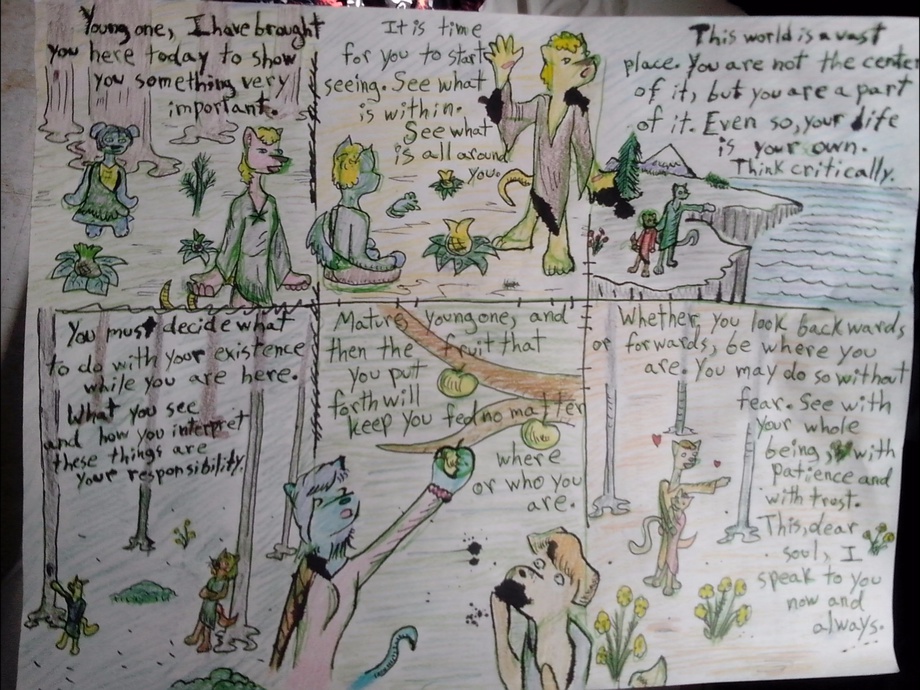 Young one, I have brought
you here today to show
you something very
important.
It is time
for you to start
seeing. See what
is within.
See what
is all around
you.
This world is a vast
place. You are not the center
of it, but you are a part
of it. Even so, your life
is your own.
Think critically.
You must decide what
to do with your existence
while you are here.
What you see
and how you interpret
these things are
your responsibility.
Mature, young one, and
then the fruit that
you put
forth will
keep you fed no matter
where
or who you
are.
Whether, you look backwards
or forwards, be where you
are. You may do so without
fear. See with
your whole
being, with
patience and
with trust.
This, dear
soul, I
speak to you
now and
always.